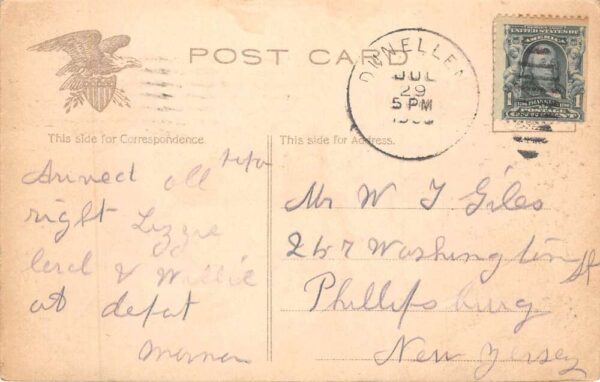 POST CARD
DUNELLEN
JUL
29
5 PM
UNITED STATES OF
AMERICA
1 POSTAGE 1
This side for Correspondence.
This side for Address.
Arrived all
right Lizzie
& Willie
at depot
Mr W J Giles
267 Washington St
Phillipsburg
New Jersey